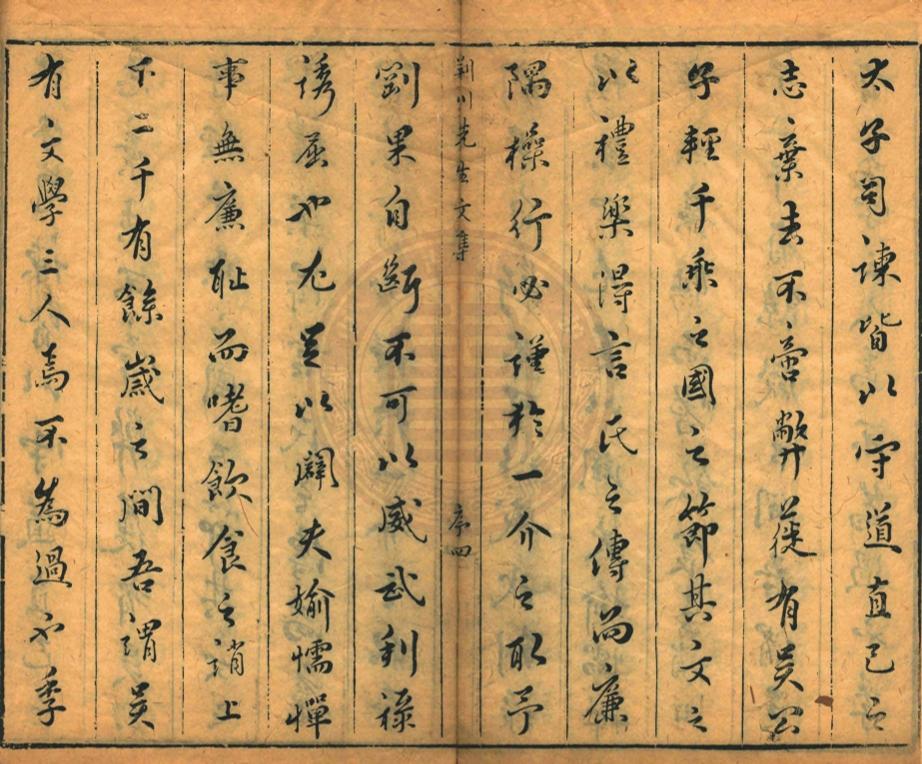 太子司諫皆以守道直己之
志棄去不啻弊蓰有吳公
子輕千乘之國之節其文之
以禮樂得言氏之傳而廉
隅操行必謹於一介之取予
荆川先生文集
序四
剛果自斷不可以威武利祿
誘屈也尤足以闢夫媮懦憚
事無廉耻而嗜飲食之誚上
下二千有餘歲之間吾謂吳
有文學三人焉不為過也季